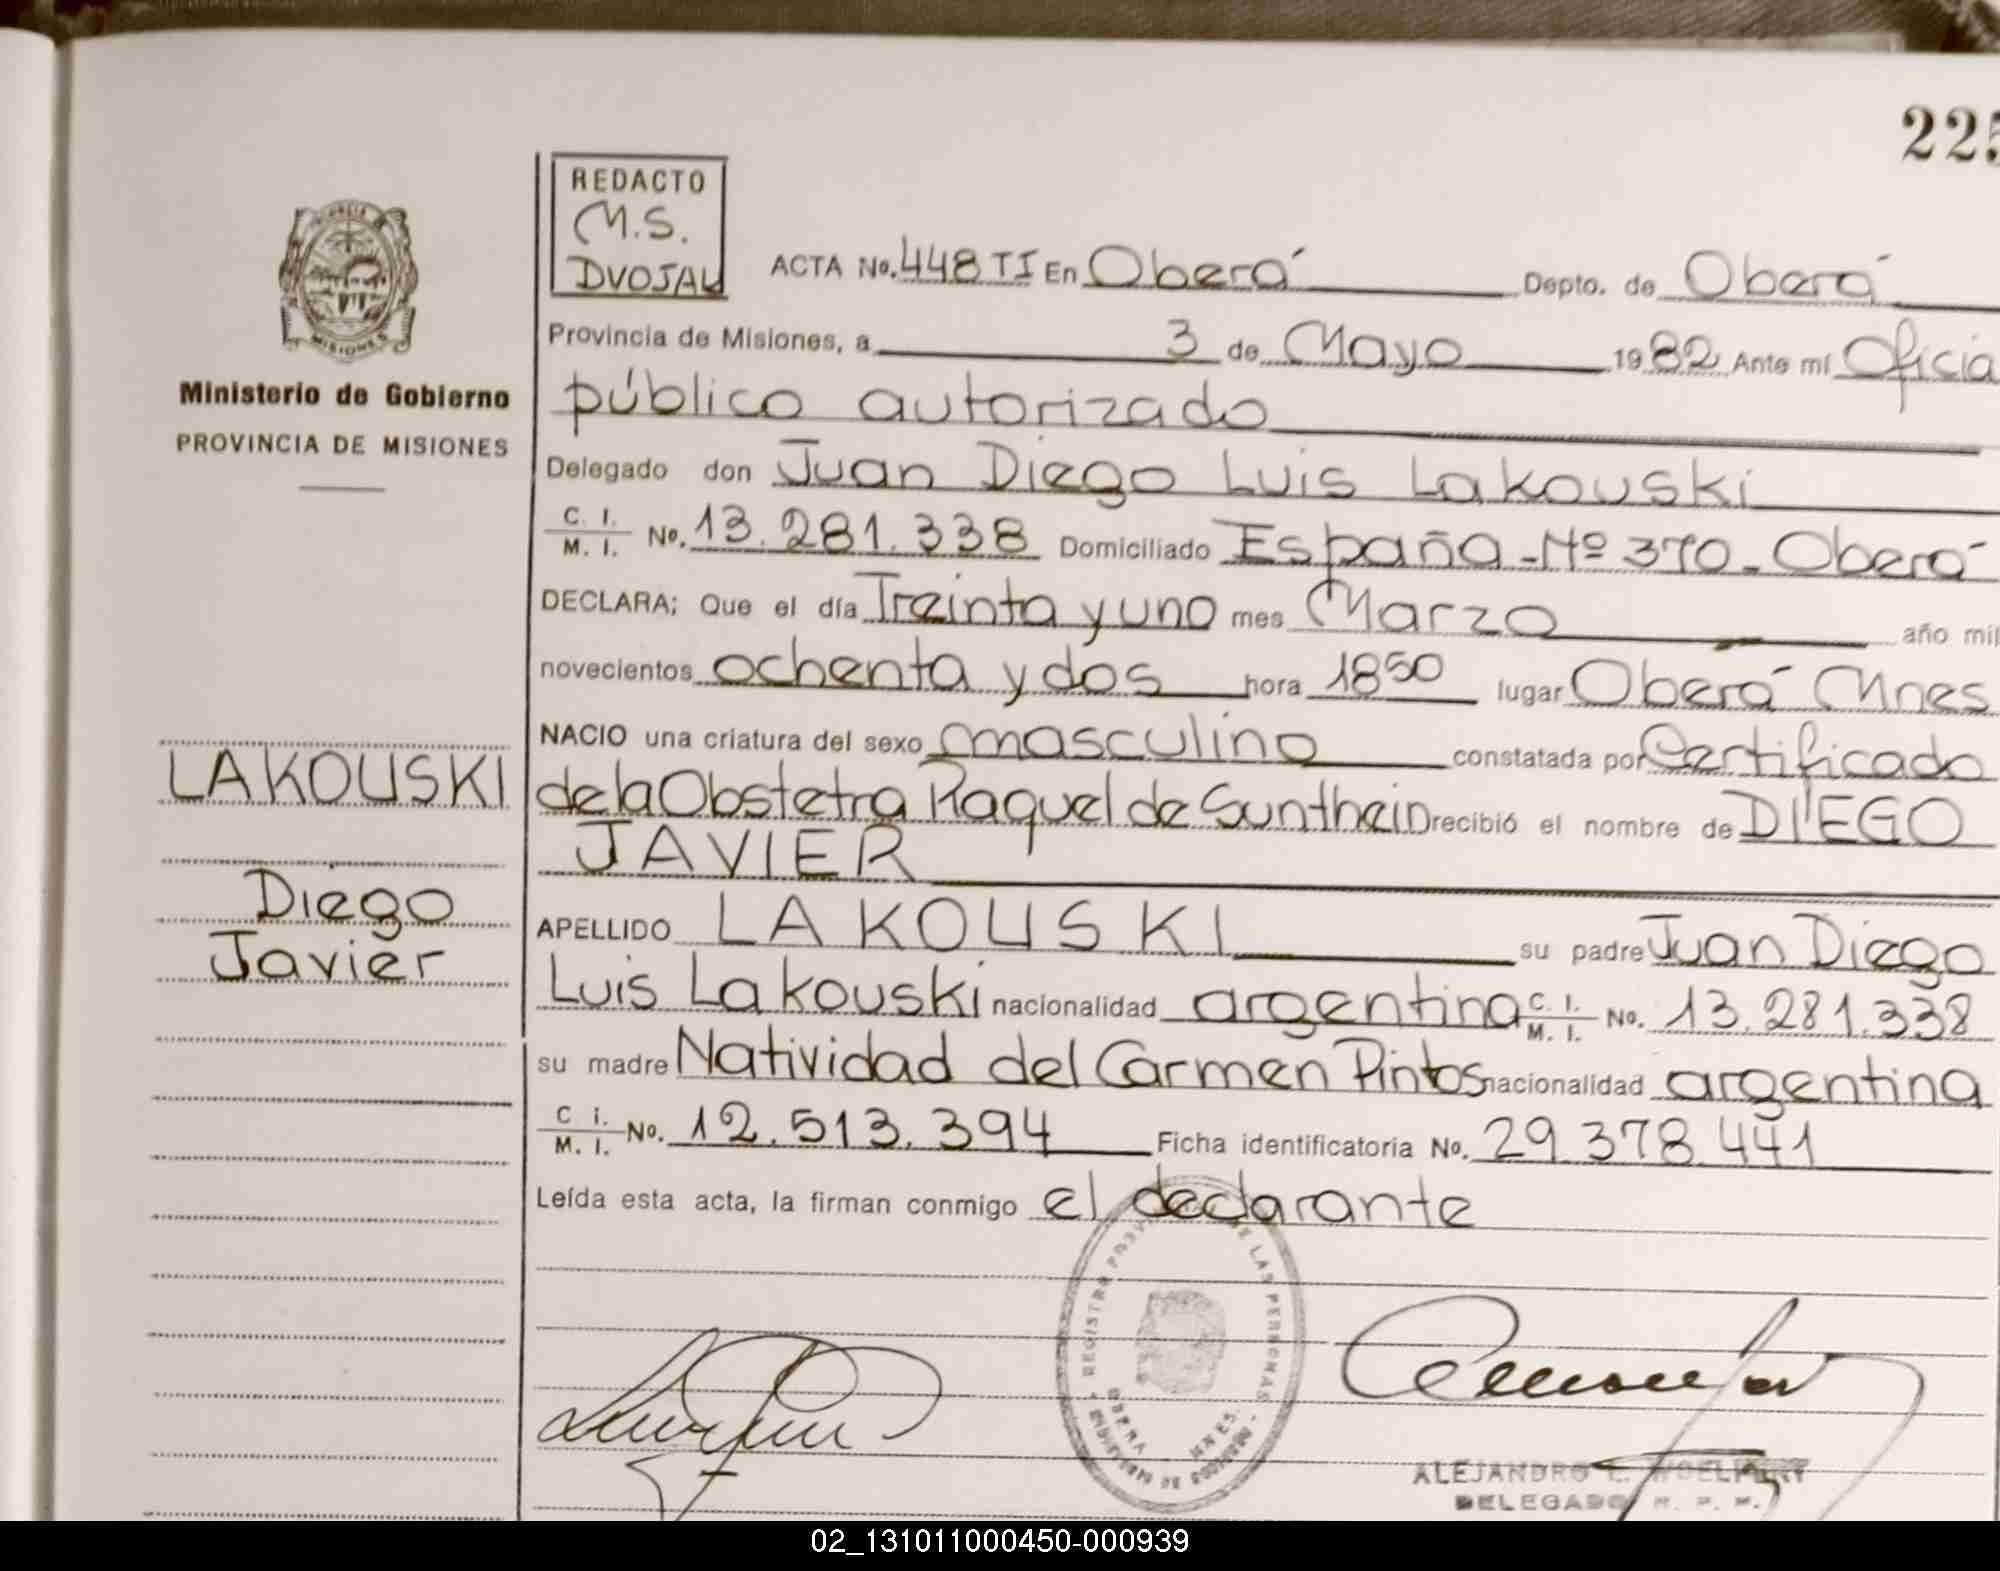 225
REDACTO
M.S.
DVOJAK
MISIONES
Ministerio de Gobierno
PROVINCIA DE MISIONES
ACTA No. 448 TI En Oberá Depto. de Oberá
Provincia de Misiones, a 3 de Mayo 1982 Ante mí Oficia
público autorizado
Delegado don Juan Diego Luis Lakouski
C. I. / M. I. No. 13.281.338 Domiciliado España - Nº 370 - Oberá
DECLARA; Que el día Treinta y uno mes Marzo año mil
novecientos ochenta y dos hora 18 50 lugar Oberá Mnes
NACIO una criatura del sexo masculino constatada por Certificado
de la Obstetra Raquel de Sunthein recibió el nombre de DIEGO
JAVIER
APELLIDO LAKOUSKI su padre Juan Diego
Luis Lakouski nacionalidad argentina C. I. / M. I. No. 13.281.338
su madre Natividad del Carmen Pintos nacionalidad argentina
C. I. / M. I. No. 12.513.394 Ficha identificatoria No. 29.378.441
Leída esta acta, la firman conmigo el declarante
LAKOUSKI
Diego
Javier
REGISTRO PROVINCIAL DE LAS PERSONAS
OBERA MNES.
ALEJANDRO
DELEGADO R. P. P.
02_131011000450-000939